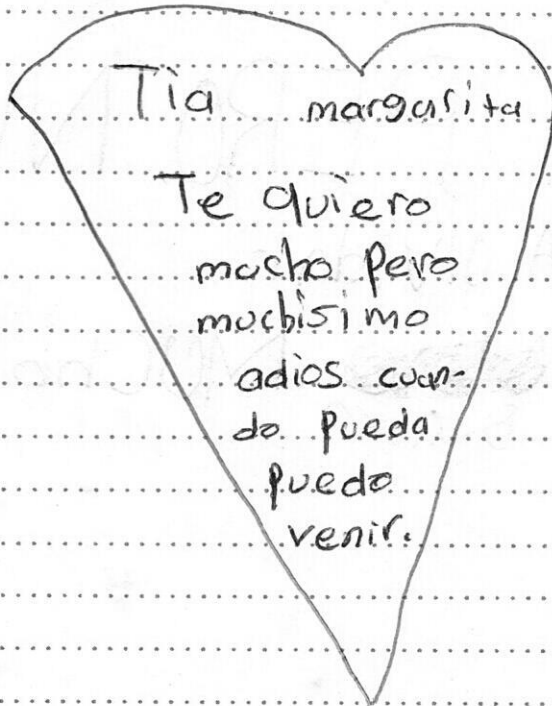 Tía margarita
Te quiero
mucho pero
muchisimo
adios cuan-
do pueda
puedo
venir.